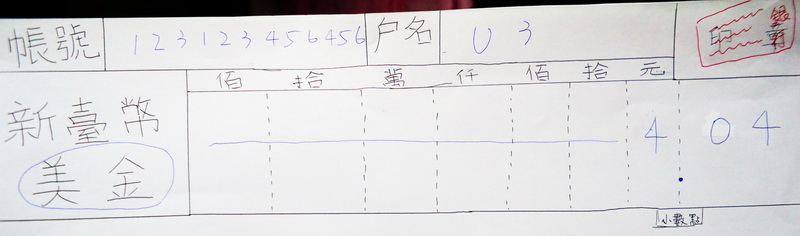 帳號 123123456456 户名 U3
佰 拾 萬 仟 佰 拾 元
新臺幣
4.04
美金
小數點